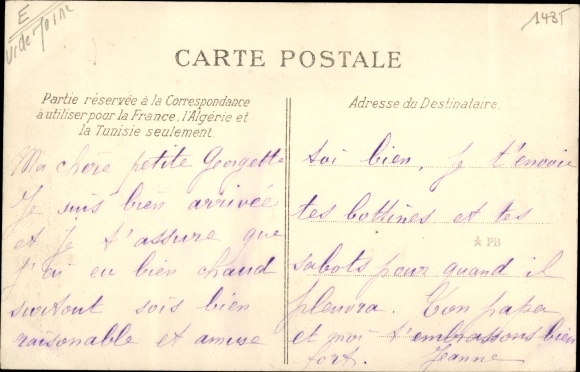 E
1435
CARTE POSTALE
Partie réservée à la Correspondance
à utiliser pour la France, l'Algérie et
la Tunisie seulement.
Adresse du Destinataire.
Ma chère petite Georgette
Je suis bien arrivée
et je t'assure que
j'ai eu bien chaud
surtout sois bien
raisonable et amuse
toi bien, Je t'envoie
tes bottines et tes
PB
sabots pour quand il
pleuvra. Ton papa
et moi t'embrassons bien
fort. Jeanne